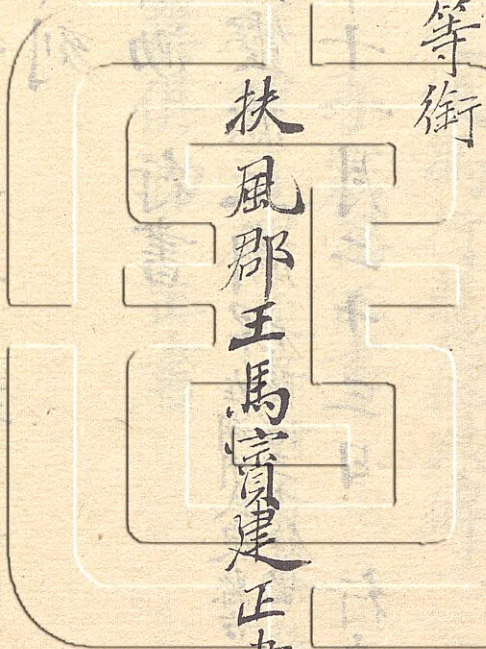 等銜
扶風郡王馬賓建正